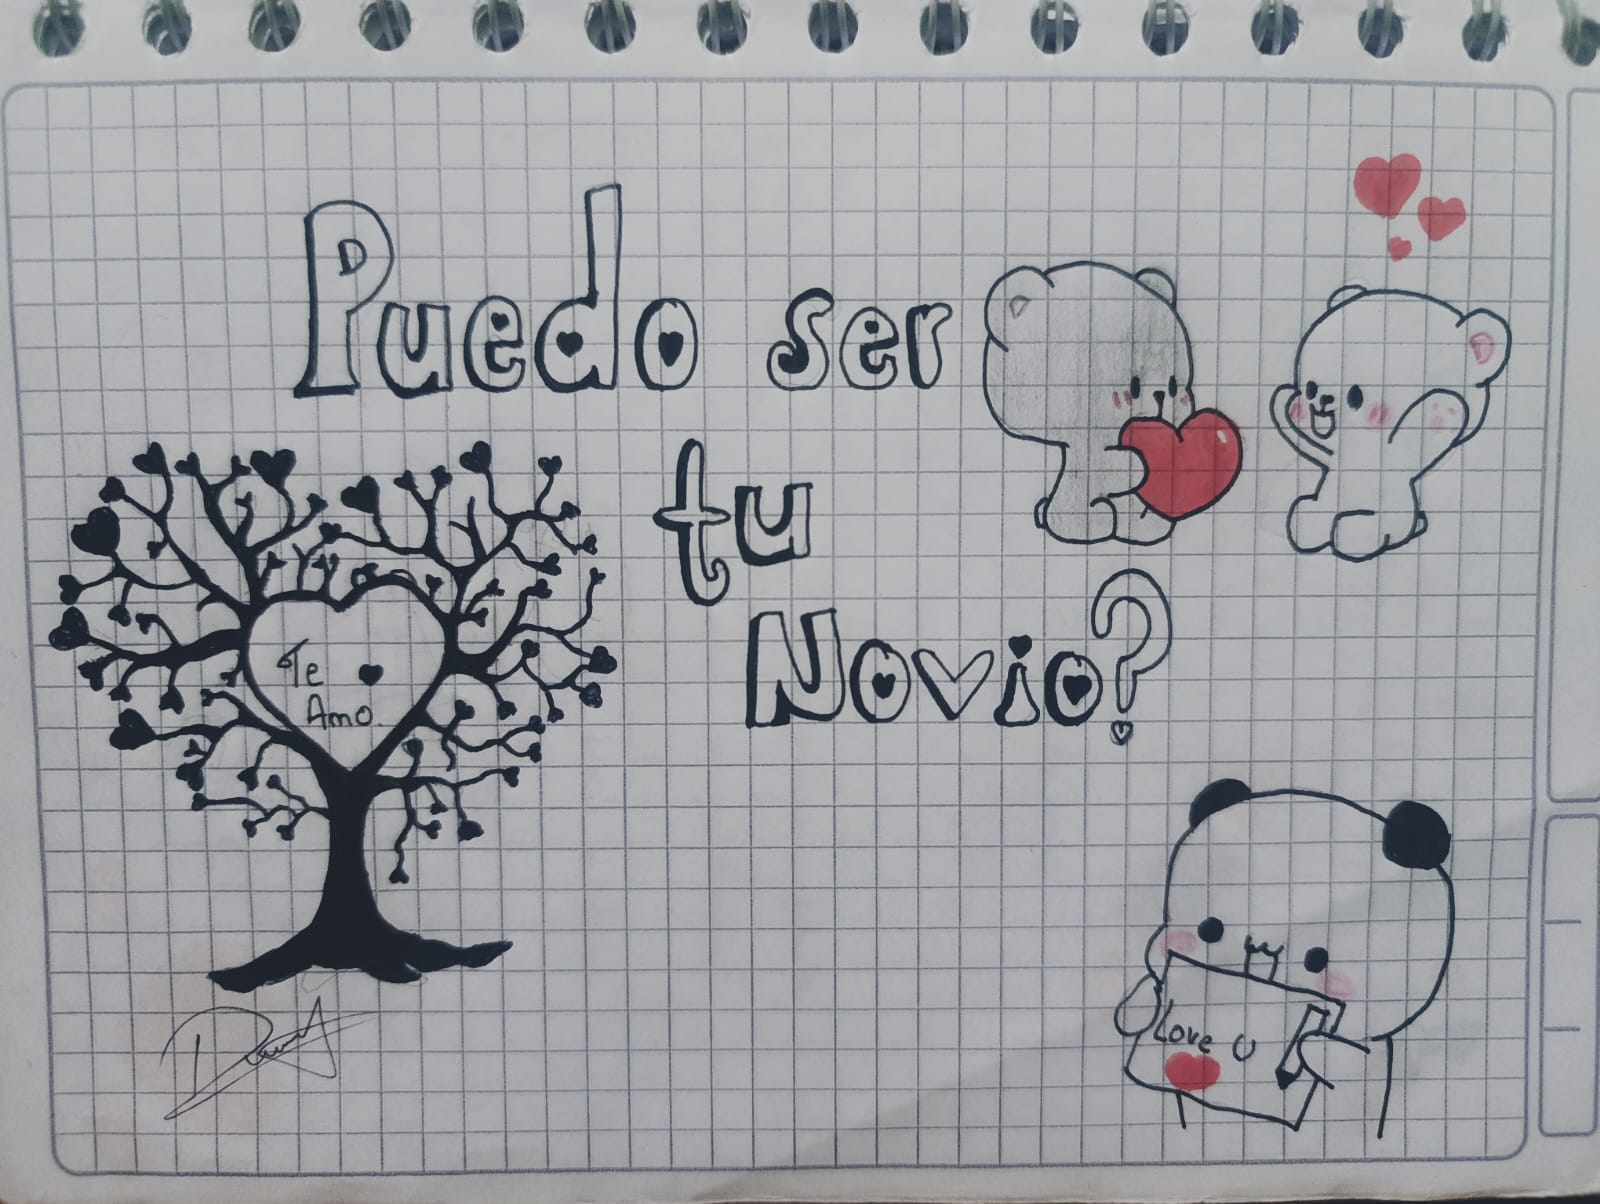 Puedo ser
tu
Novio?
Te
Amo.
Love U